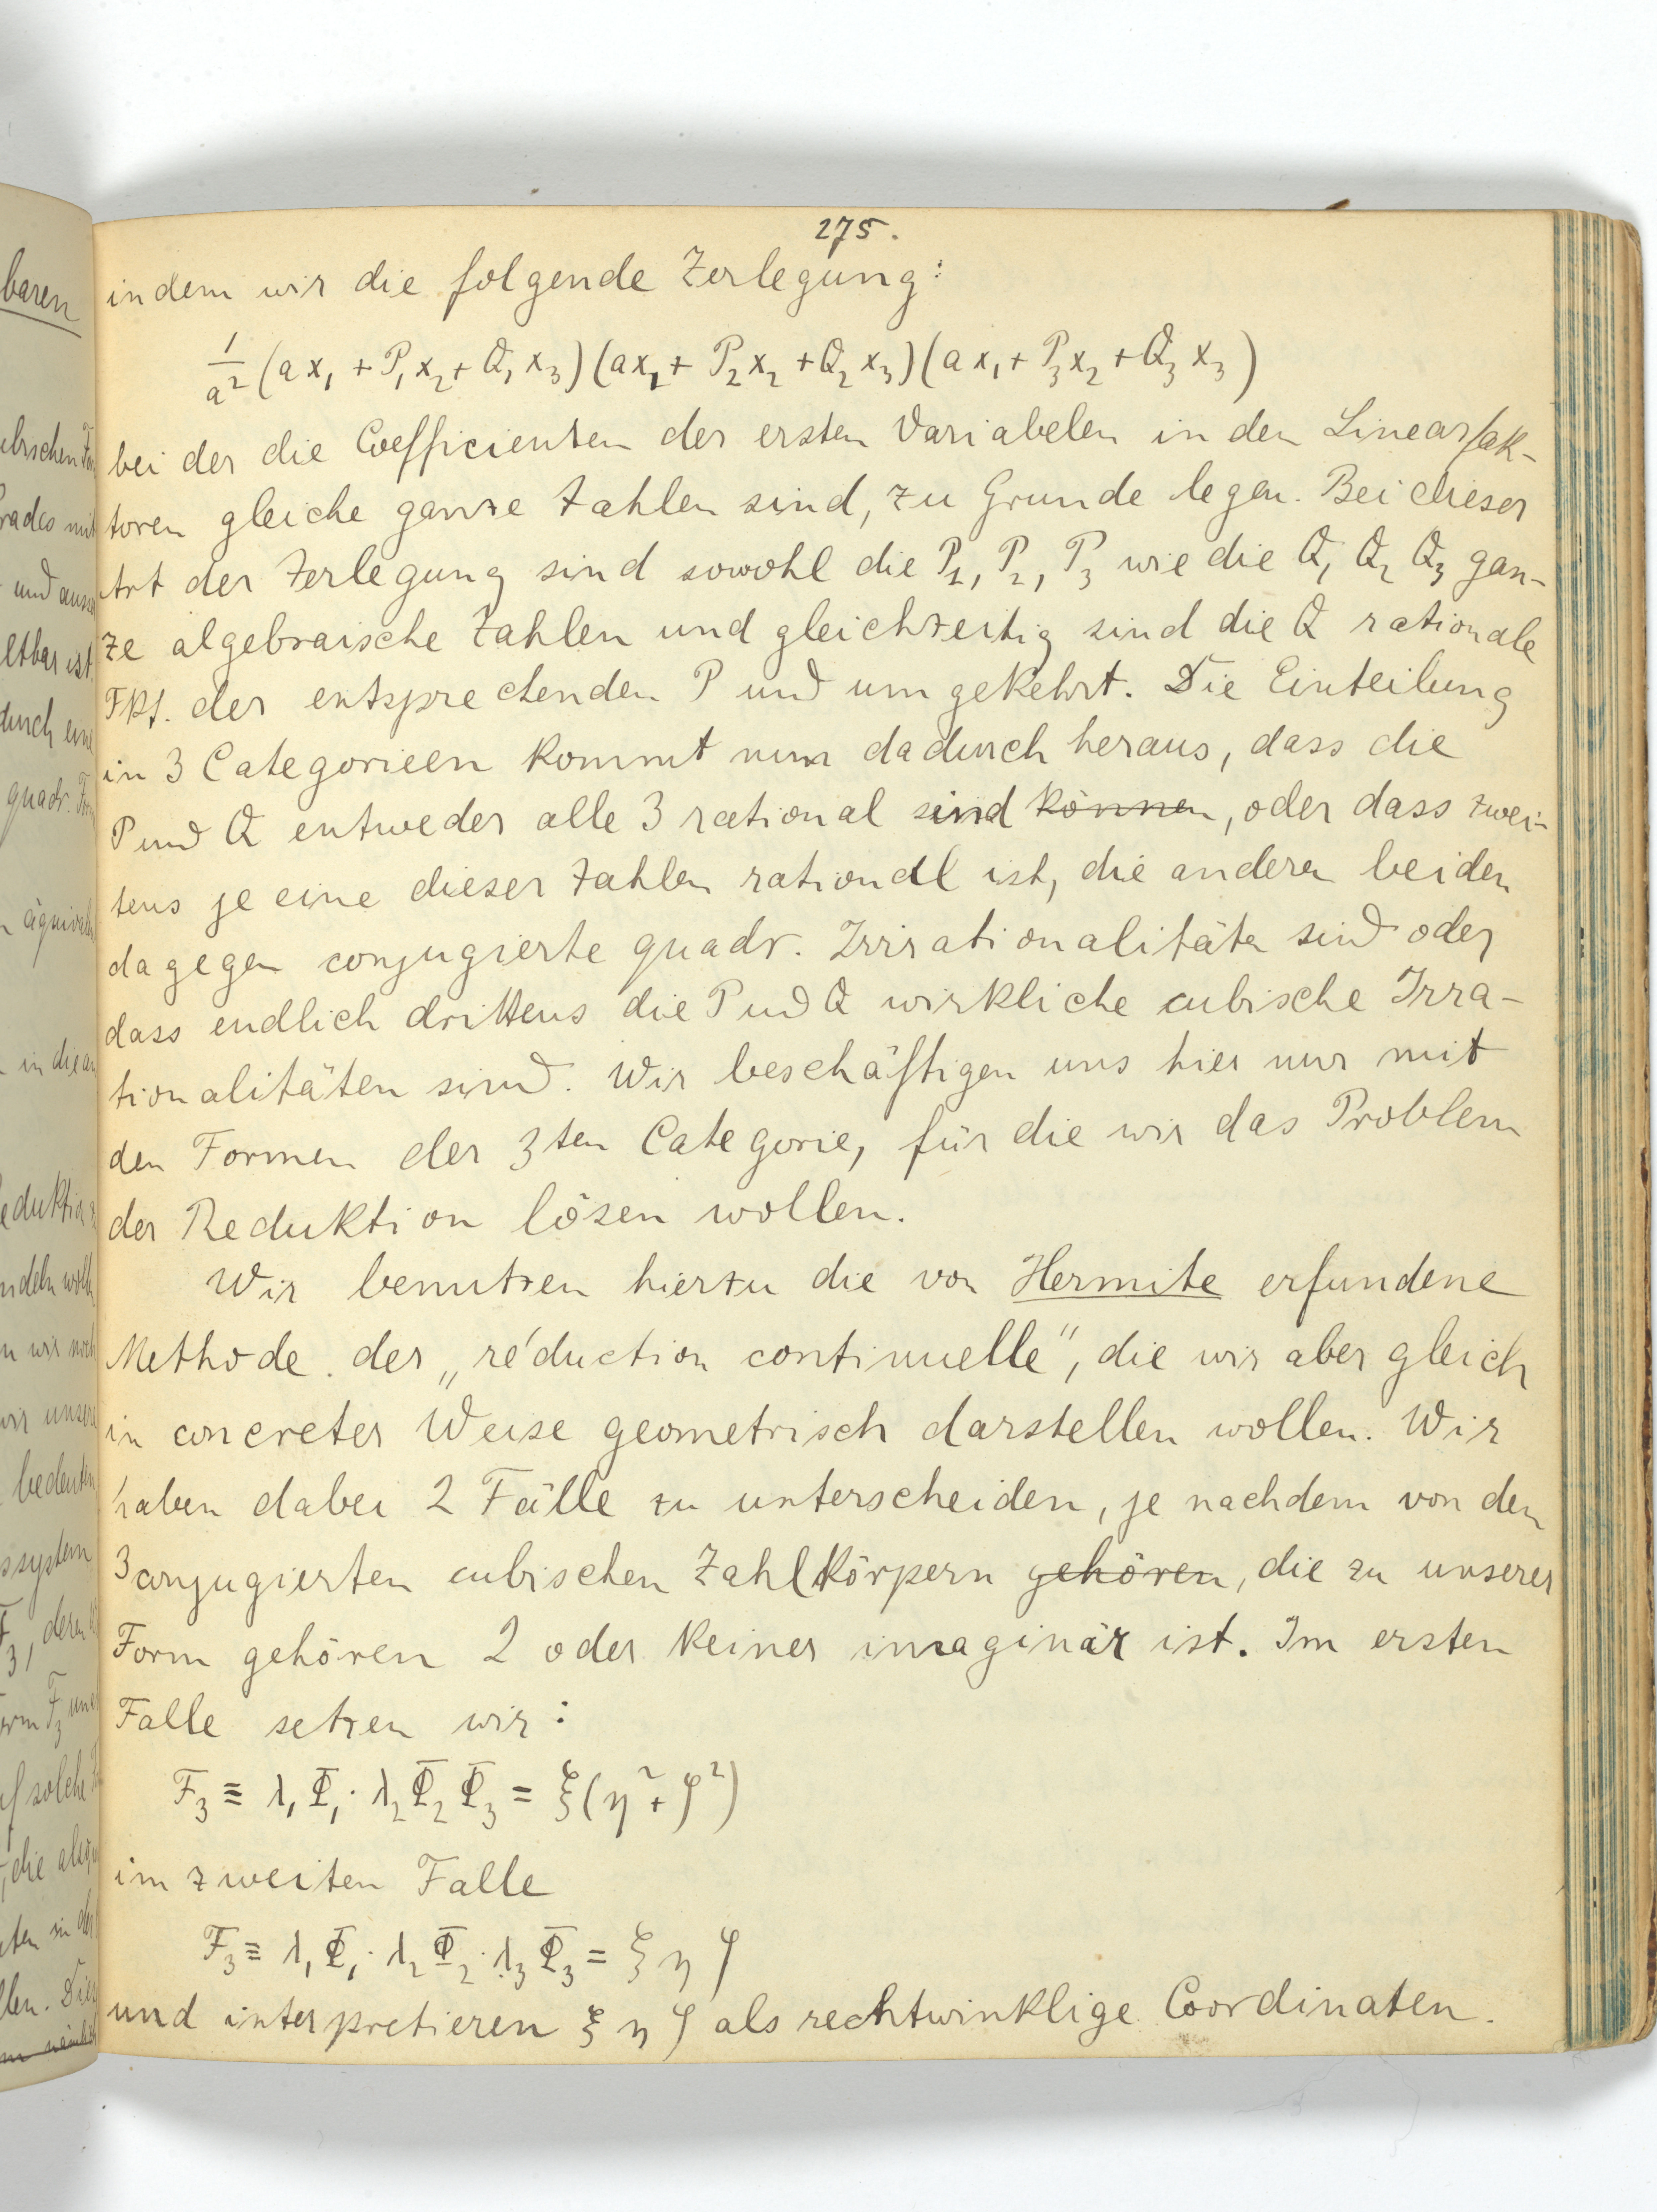 275.
indem wir die folgende Zerlegung:
1/a² (ax₁ + P₁x₂ + Q₁x₃)(ax₁ + P₂x₂ + Q₂x₃)(ax₁ + P₃x₂ + Q₃x₃)
bei der die Coefficienten der ersten Variabelen in den Linearfak-
toren gleiche ganze Zahlen sind, zu Grunde legen. Bei dieser
Art der Zerlegung sind sowohl die P₁, P₂, P₃ wie die Q₁ Q₂ Q₃ gan-
ze algebraische Zahlen und gleichzeitig sind die Q rationale
Fkt. der entsprechenden P und umgekehrt. Die Einteilung
in 3 Categorieen kommt nun dadurch heraus, dass die
P und Q entweder alle 3 rational sind können, oder dass zwei-
tens je eine dieser Zahlen rational ist, die anderen beiden
dagegen conjugierte quadr. Irrationalitäten sind oder
dass endlich drittens die P und Q wirkliche cubische Irra-
tionalitäten sind. Wir beschäftigen uns hier nur mit
den Formen der 3ten Categorie, für die wir das Problem
der Reduktion lösen wollen.
Wir benutzen hierzu die von Hermite erfundene
Methode der „réduction continuelle", die wir aber gleich
in concreter Weise geometrisch darstellen wollen. Wir
haben dabei 2 Fälle zu unterscheiden, je nachdem von den
3 conjugierten cubischen Zahlkörpern gehören, die zu unserer
Form gehören 2 oder keiner imaginär ist. Im ersten
Falle setzen wir:
F₃ ≡ λ₁Φ₁·λ₂Φ₂Φ₃ = ξ(η² + ζ²)
im zweiten Falle
F₃ ≡ λ₁Φ₁·λ₂Φ₂·λ₃Φ₃ = ξ η ζ
und interpretieren ξ η ζ als rechtwinklige Coordinaten.
baren
und
quadr.
in die
bedeuten